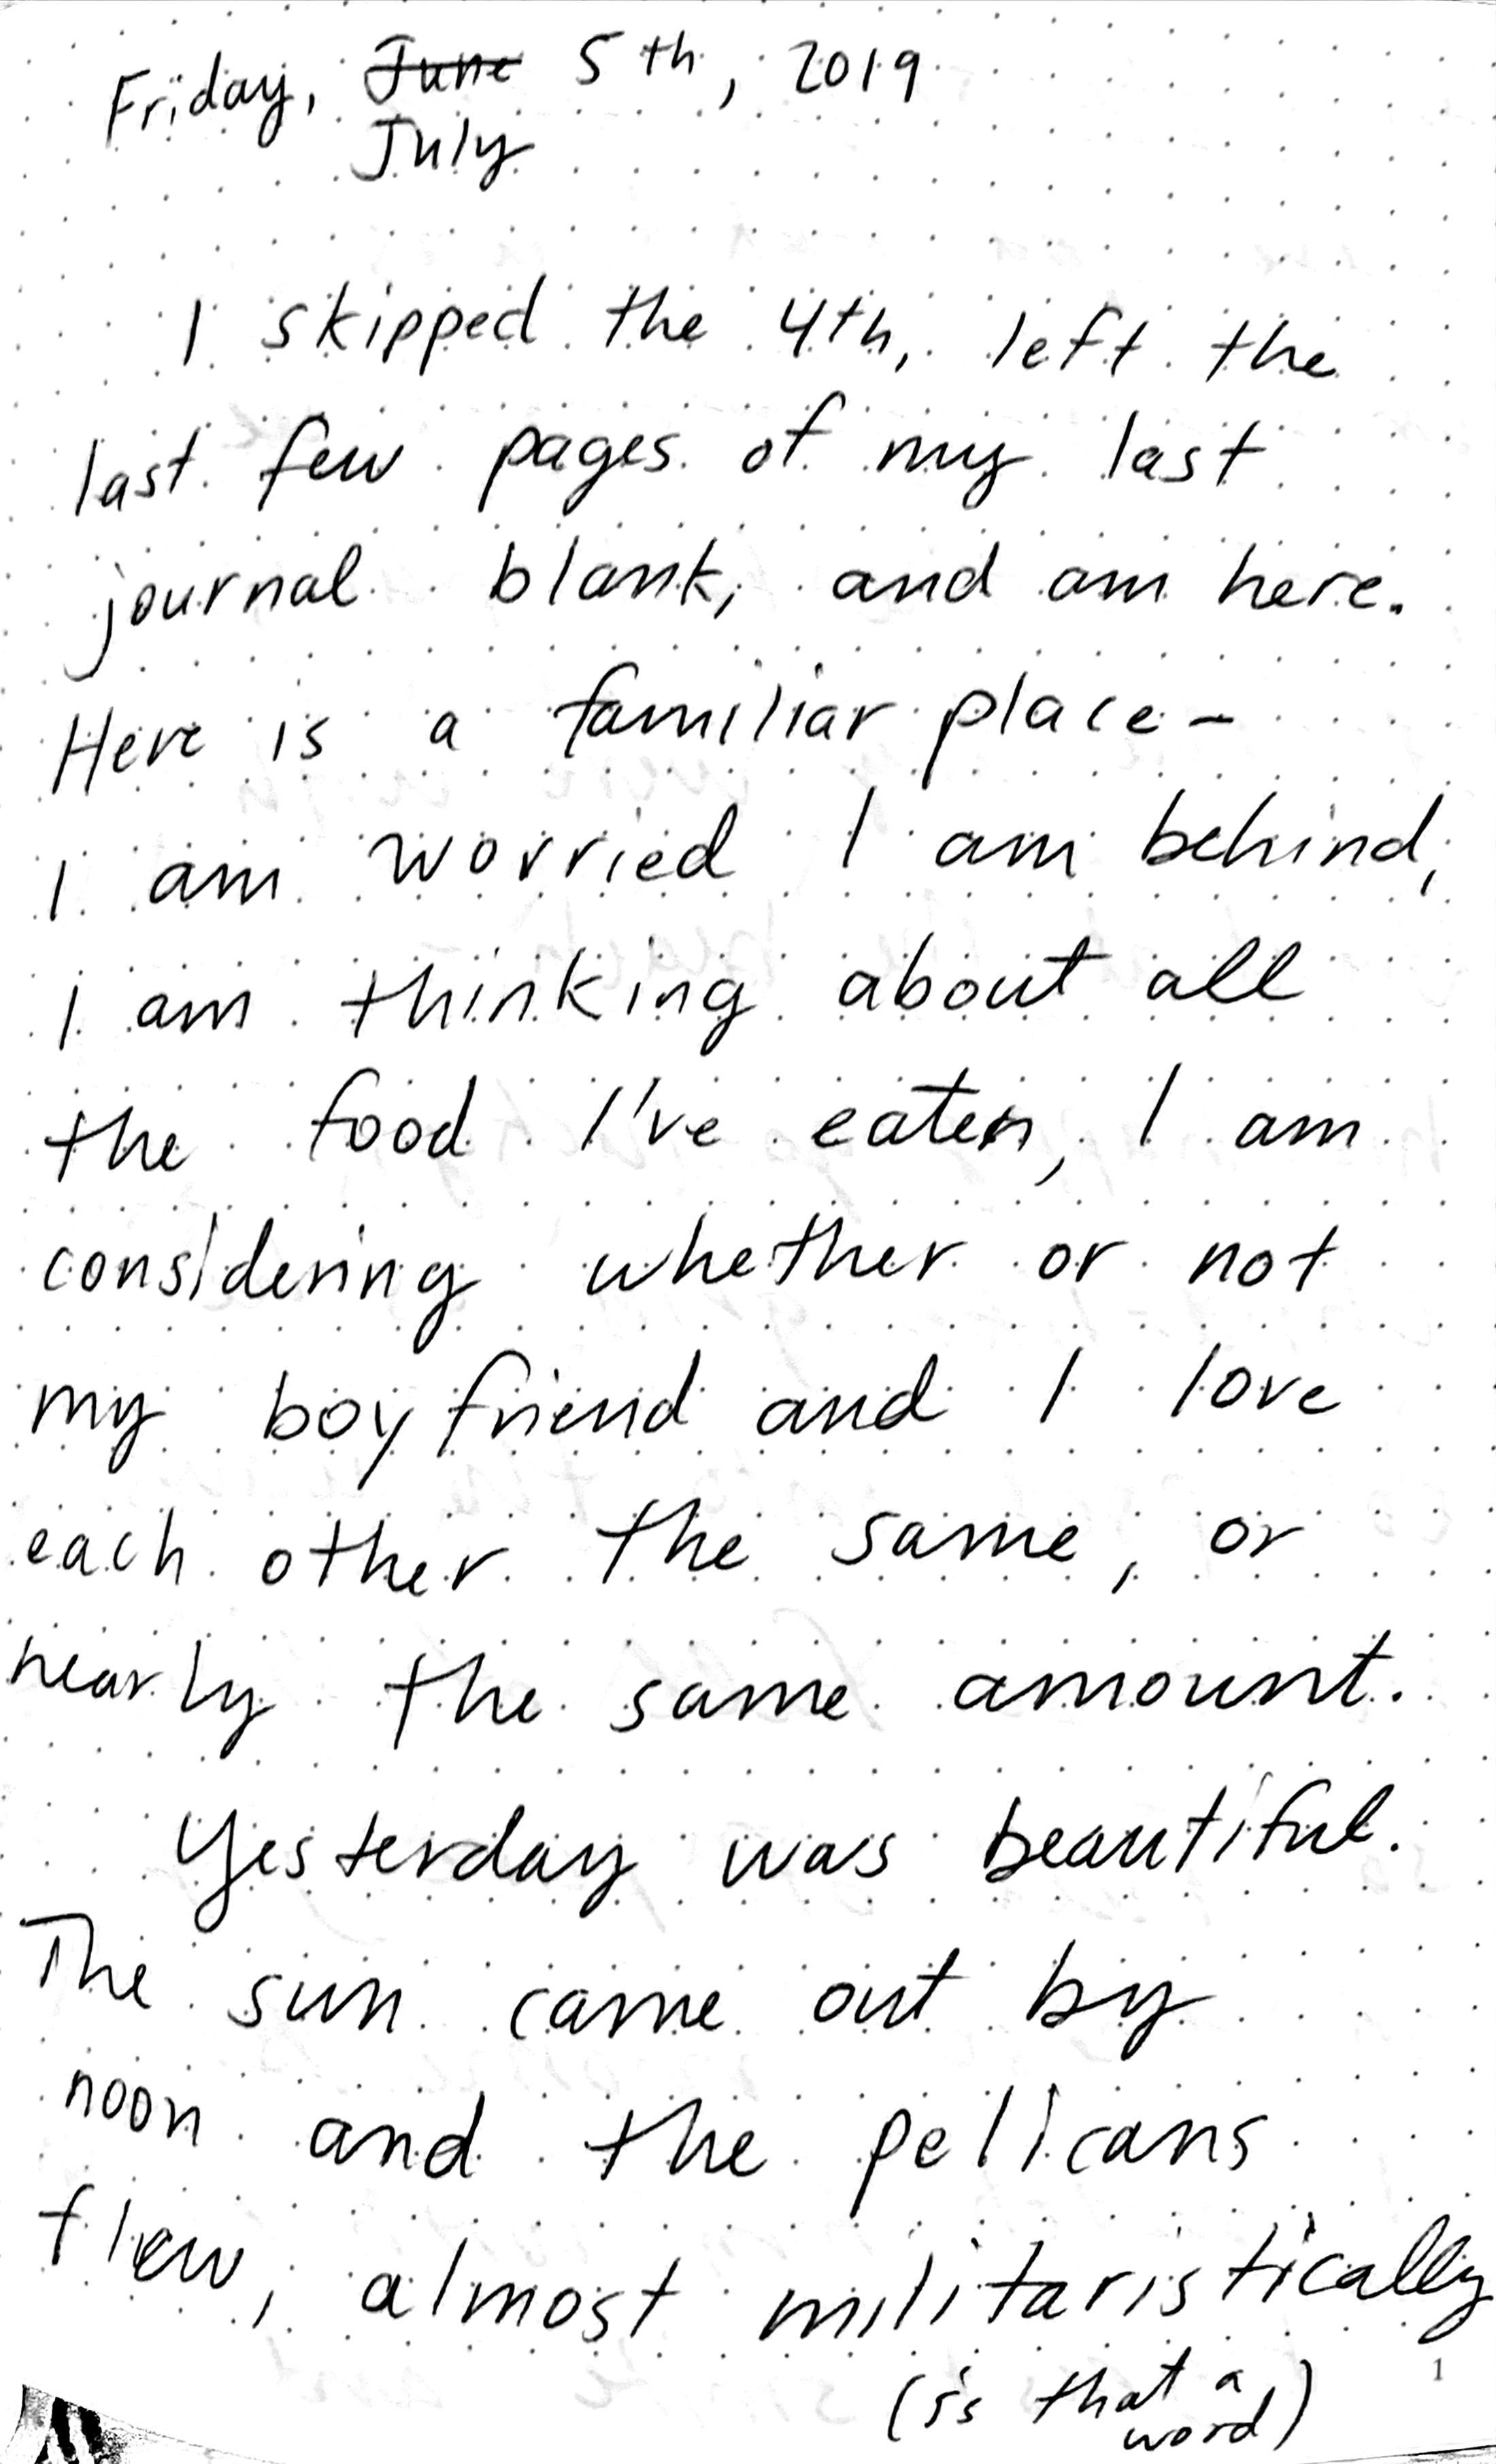 Friday, June 5th, 2019
July
I skipped the 4th, left the
last few pages of my last
journal blank, and am here.
Here is a familiar place-
I am worried I am behind,
I am thinking about all
the food I've eaten, I am
considering whether or not
my boyfriend and I love
each other the same, or
nearly the same amount.
Yesterday was beautiful.
The sun came out by
noon and the pelicans
flew, almost militaristically
(is that a
word)
1